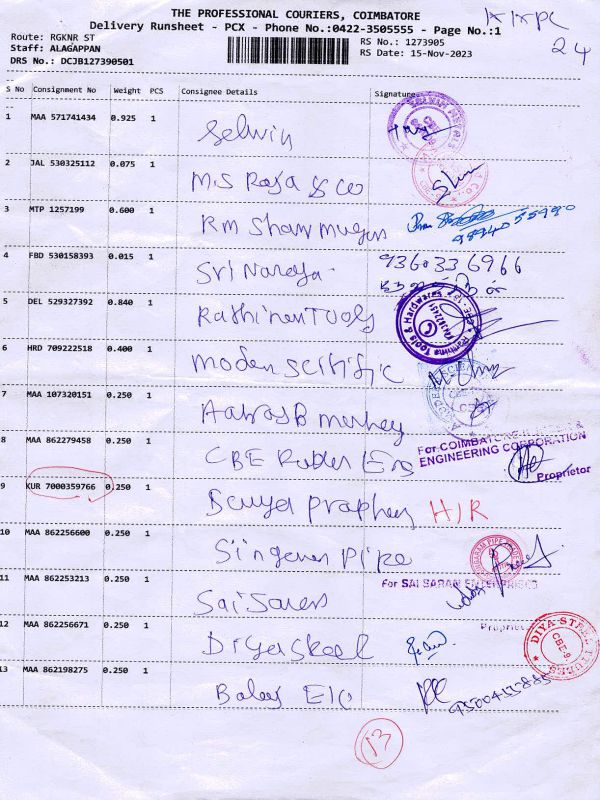 THE PROFESSIONAL COURIERS, COIMBATORE
Delivery Runsheet - PCX - Phone No.:0422-3505555 - Page No.:1
24
Route: RGKNR ST
Staff: ALAGAPPAN
DRS No.: DCJB127390501
RS No.: 1273905
RS Date: 15-Nov-2023
S No Consignment No Weight PCS Consignee Details Signature
1 MAA 571741434 0.925 1 Selwin
2 JAL 530325112 0.075 1 M.S Raja & co
3 MTP 1257199 0.600 1 Rm Shanmugam
98940 55990
4 FBD 530158393 0.015 1 Sri Naraya 9360336966
5 DEL 529327392 0.840 1 Rathinam Tools
6 HRD 709222518 0.400 1 Moden Scitific
7 MAA 107320151 0.250 1
8 MAA 862279458 0.250 1 CBE Rubber Eng
For COIMBATORE RUBBER &
ENGINEERING CORPORATION
Proprietor
9 KUR 7000359766 0.250 1 H/R
10 MAA 862256600 0.250 1 Singaram Pipe
For SAI SARAN ENTERPRISES
11 MAA 862253213 0.250 1 Sai Saran
Proprietor
12 MAA 862256671 0.250 1 Diya Steel
DIYA STEEL TUBES
CBE-9
13 MAA 862198275 0.250 1 Balaj E/c
13